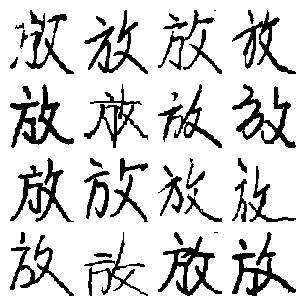 放放放放
放放放放
放放放放
放放放放